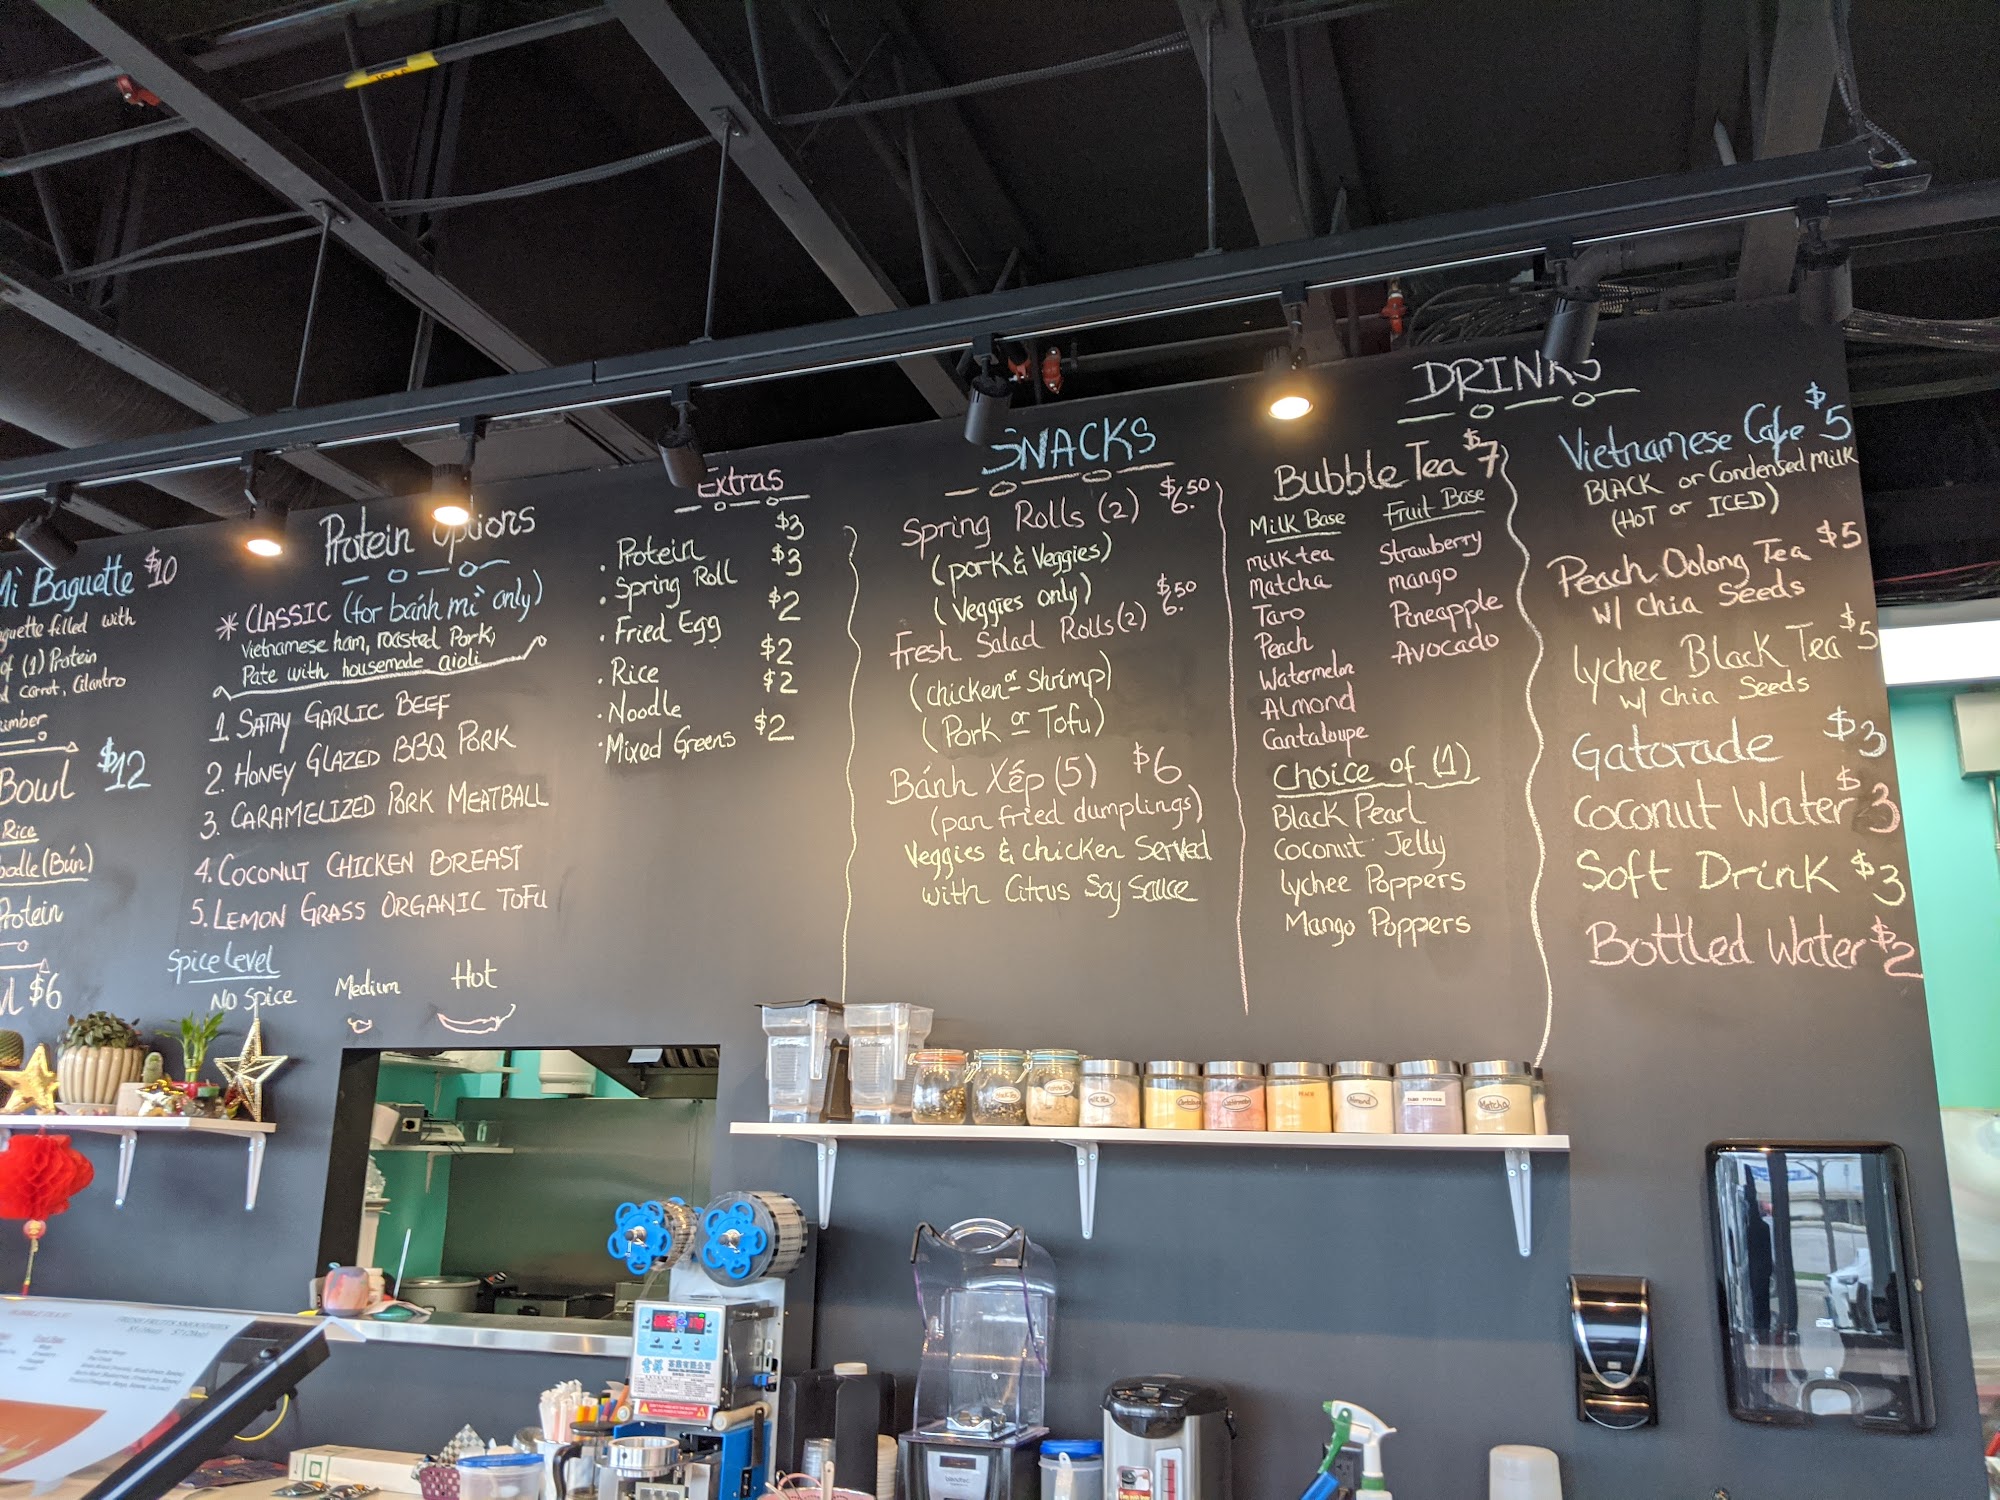 Mì Baguette $10
filled with
of (1) Protein
Carrot, Cilantro
Bowl $12
Rice
(Bún)
Protein
$6
Protein Options
* CLASSIC (for bánh mì only)
Vietnamese ham, roasted Pork,
Pate with housemade aioli
1. SATAY GARLIC BEEF
2. HONEY GLAZED BBQ PORK
3. CARAMELIZED PORK MEATBALL
4. COCONUT CHICKEN BREAST
5. LEMON GRASS ORGANIC TOFU
Spice Level
No Spice Medium Hot
Extras
· Protein $3
· Spring Roll $3
· Fried Egg $2
· Rice $2
· Noodle $2
· Mixed Greens $2
SNACKS
Spring Rolls (2) $6.50
(pork & Veggies)
(Veggies only)
Fresh Salad Rolls (2) $6.50
(chicken or Shrimp)
(Pork or Tofu)
Bánh Xếp (5) $6
(pan fried dumplings)
Veggies & chicken Served
with Citrus Soy Sauce
DRINKS
Bubble Tea $7
Milk Base
milk tea
Matcha
Taro
Peach
Watermelon
Almond
Cantaloupe
Fruit Base
Strawberry
mango
Pineapple
Avocado
Choice of (1)
Black Pearl
Coconut Jelly
Lychee Poppers
Mango Poppers
Vietnamese Cafe $5
BLACK or Condensed Milk
(HOT or ICED)
Peach Oolong Tea $5
w/ Chia Seeds
Lychee Black Tea $5
w/ Chia Seeds
Gatorade $3
Coconut Water $3
Soft Drink $3
Bottled Water $2
PEACH
Almond
Matcha